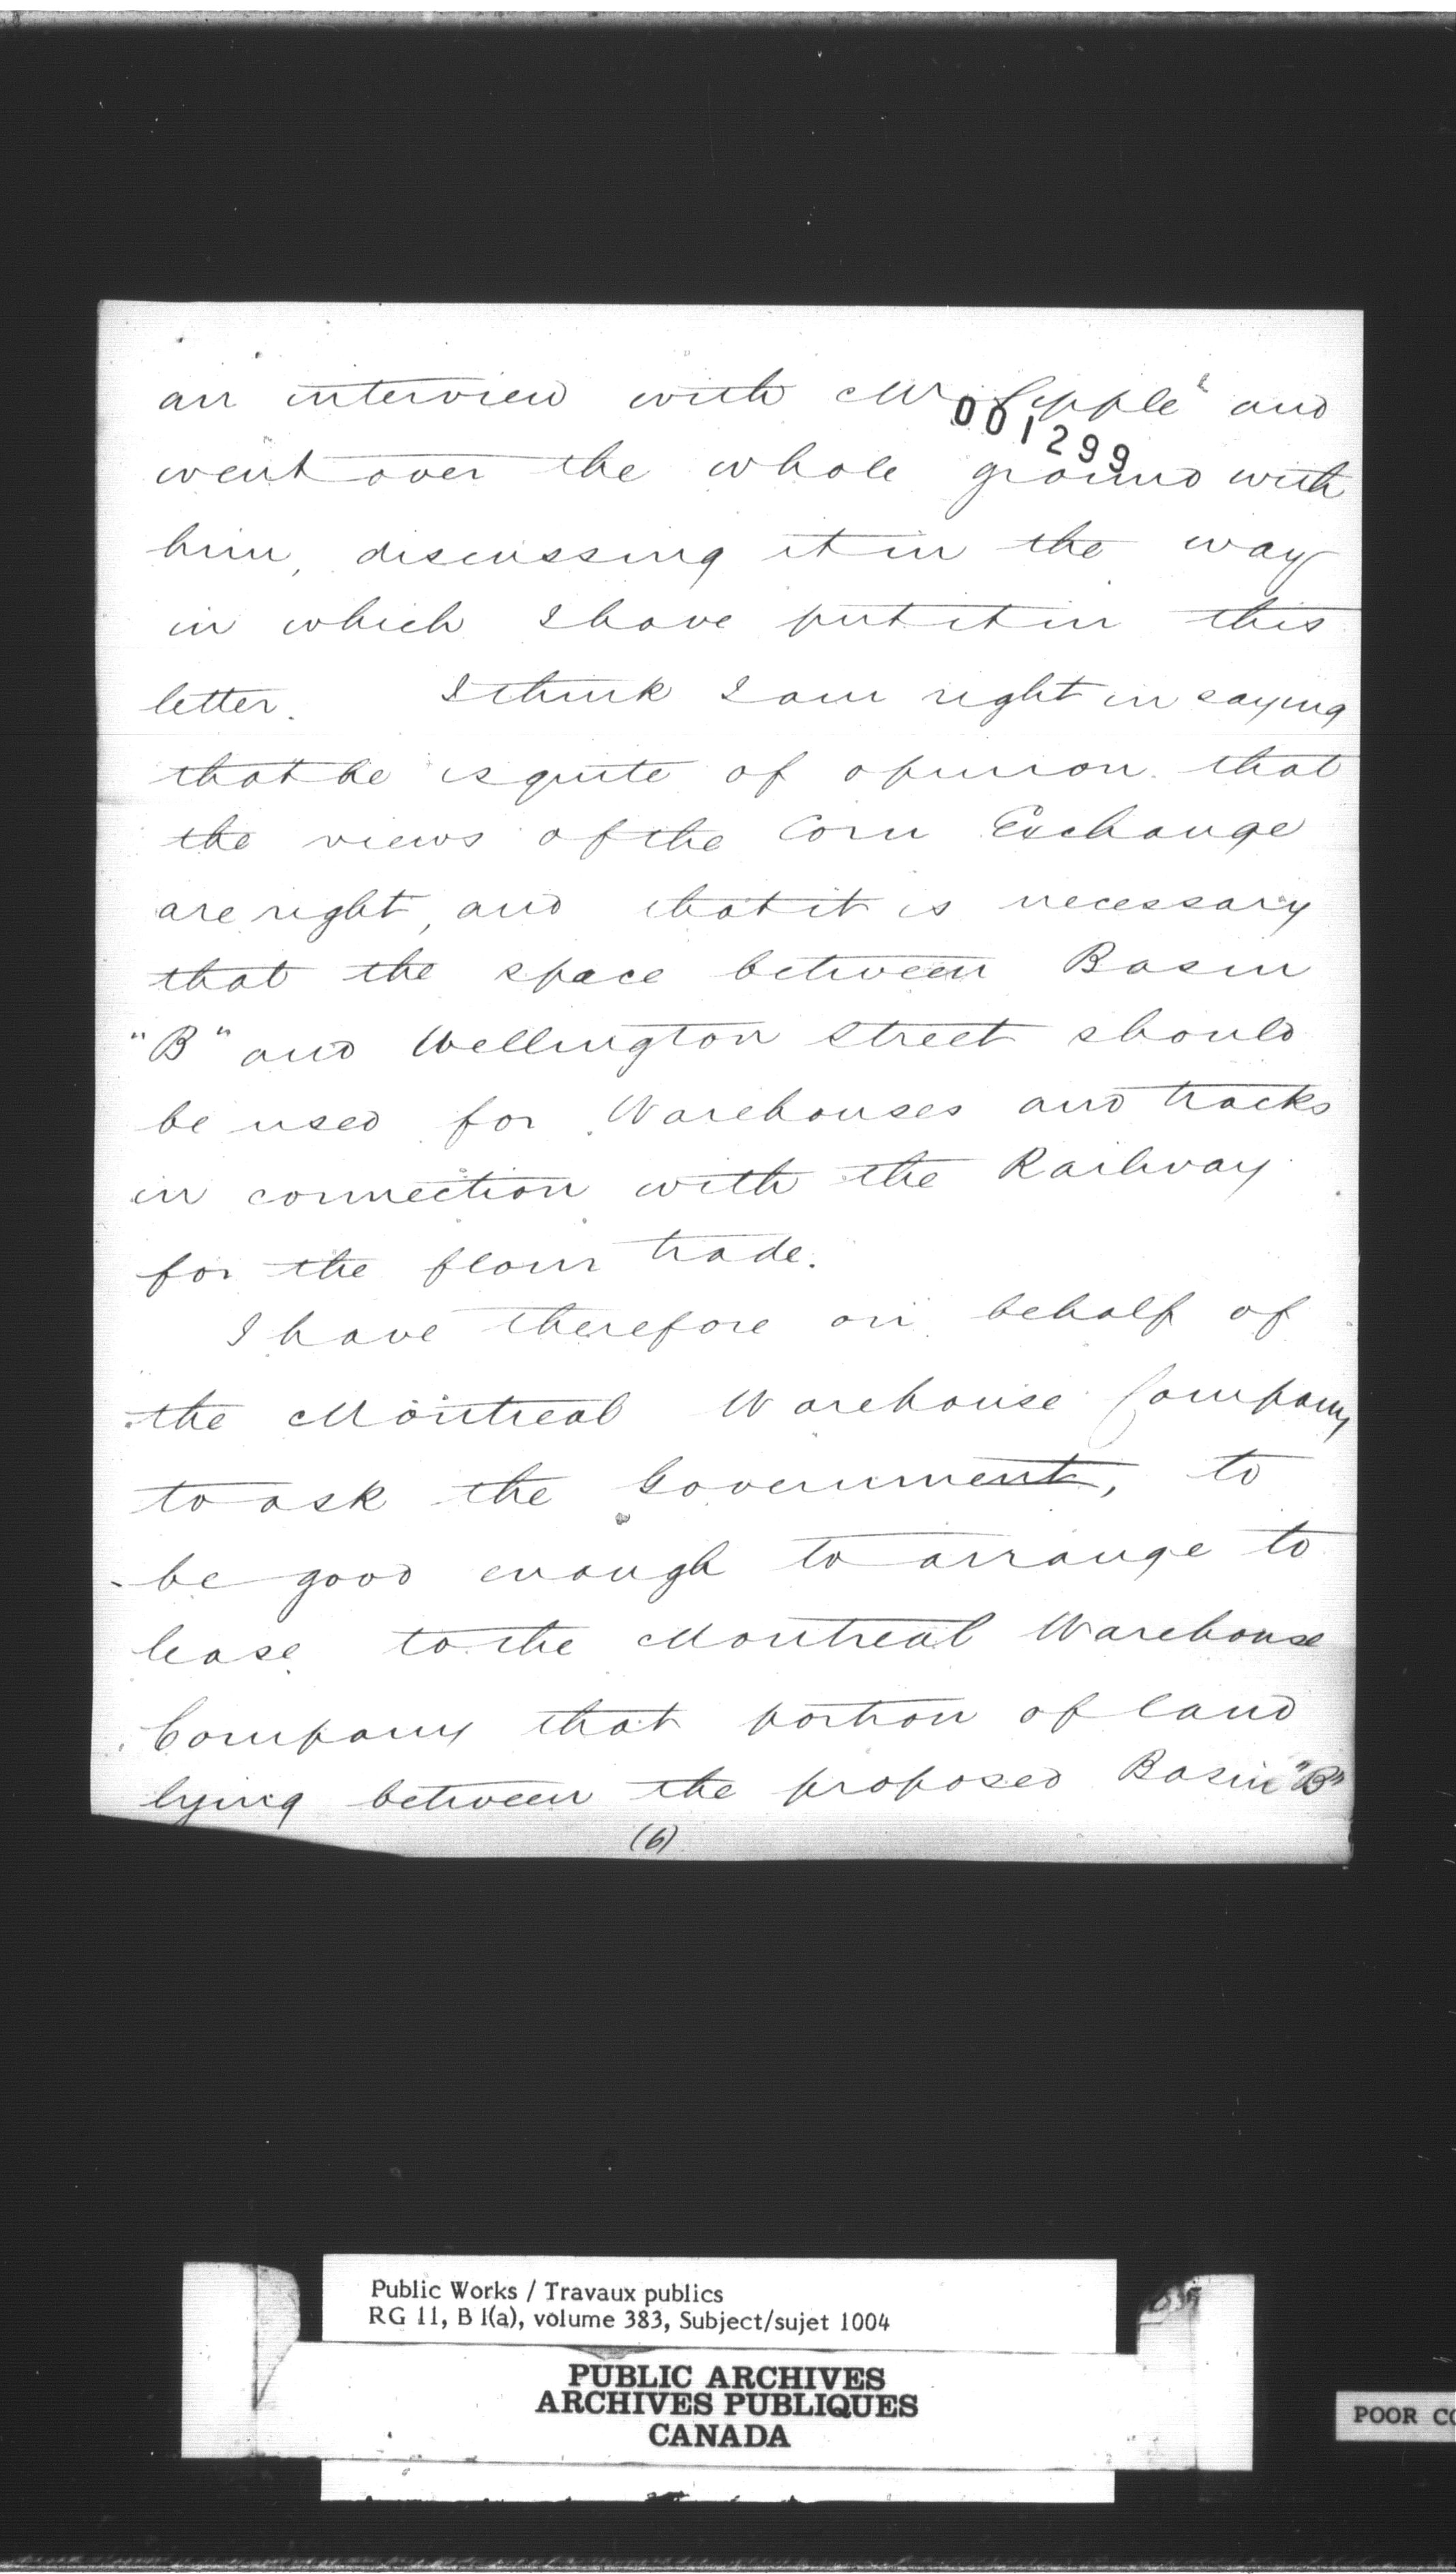 an interview with Mr Sippell and
001299
went over the whole ground with
him, discussing it in the way
in which I have put it in this
letter. I think I am right in saying
that he is quite of opinion that
the views of the Corn Exchange
are right, and that it is necessary
that the space between Basin
"B" and Wellington Street should
be used for Warehouses and tracks
in connection with the Railway
for the flour trade.
I have therefore on behalf of
the Montreal Warehouse Company
to ask the Government, to
be good enough to arrange to
lease to the Montreal Warehouse
Company that portion of land
lying between the proposed Basin "B"
(6)
Public Works / Travaux publics
RG 11, B 1(a), volume 383, Subject/sujet 1004
PUBLIC ARCHIVES
ARCHIVES PUBLIQUES
CANADA
POOR CO